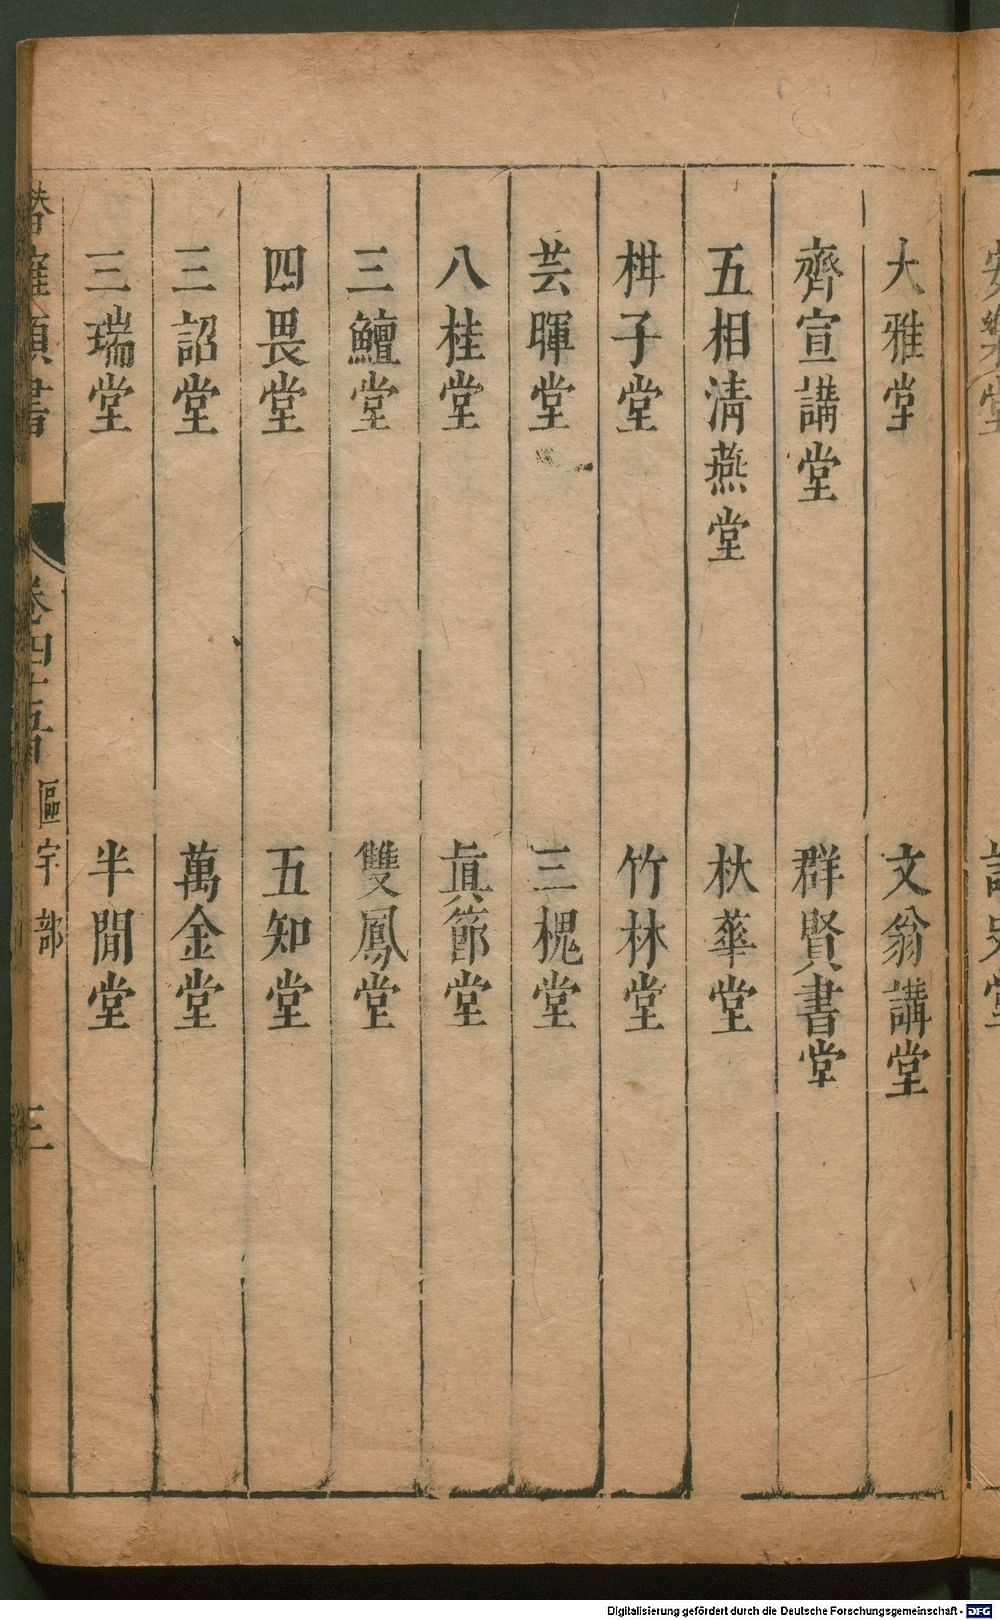 大雅堂 文翁講堂
齊宣講堂 群賢書堂
五相清燕堂 秋華堂
楫子堂 竹林堂
芸暉堂 三槐堂
八桂堂 眞節堂
三鱣堂 雙鳳堂
四畏堂 五知堂
三詔堂 萬金堂
三瑞堂 半閒堂
卷四十五 區宇部 三
Digitalisierung gefördert durch die Deutsche Forschungsgemeinschaft - DFG